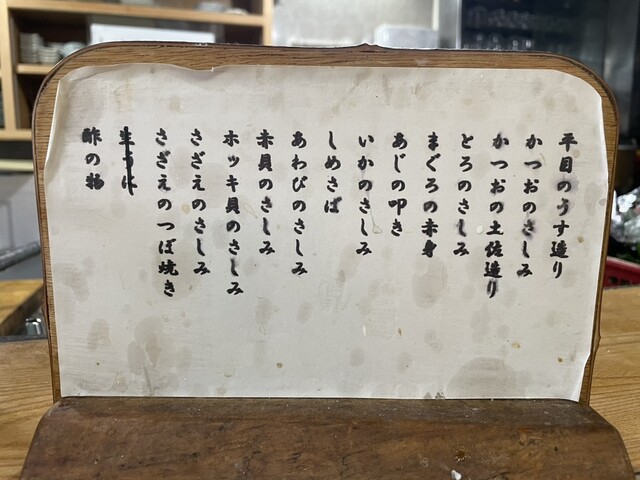 平目のうす造り
かつおのさしみ
かつおの土佐造り
とろのさしみ
まぐろの赤身
あじの叩き
いかのさしみ
しめさば
あわびのさしみ
赤貝のさしみ
ホッキ貝のさしみ
さざえのさしみ
さざえのつぼ焼き
生うに
酢の物